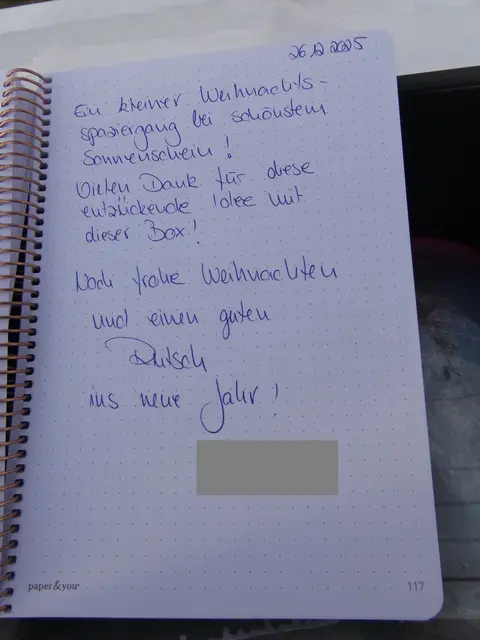 26.12.2025
Ein kleiner Weihnachts-
spaziergang bei schönstem
Sonnenschein!
Vielen Dank für diese
entzückende Idee mit
dieser Box!
Noch frohe Weihnachten
und einen guten
Rutsch
ins neue Jahr!
paper&you
117